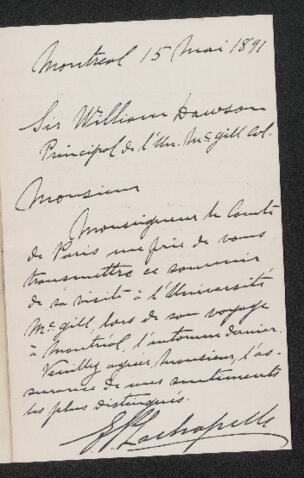 Montreal 15 Mai 1891
Sir William Dawson
Principal de l'Un. McGill Col.
Monsieur
Monseigneur le Comte
de Paris me prie de vous
transmettre ce souvenir
de sa visite à l'Université
McGill, lors de son voyage
à Montréal, l'automne dernier.
Veuillez agréer, Monsieur, l'as-
surance de mes sentiments
les plus distingués.
E.P. Lachapelle